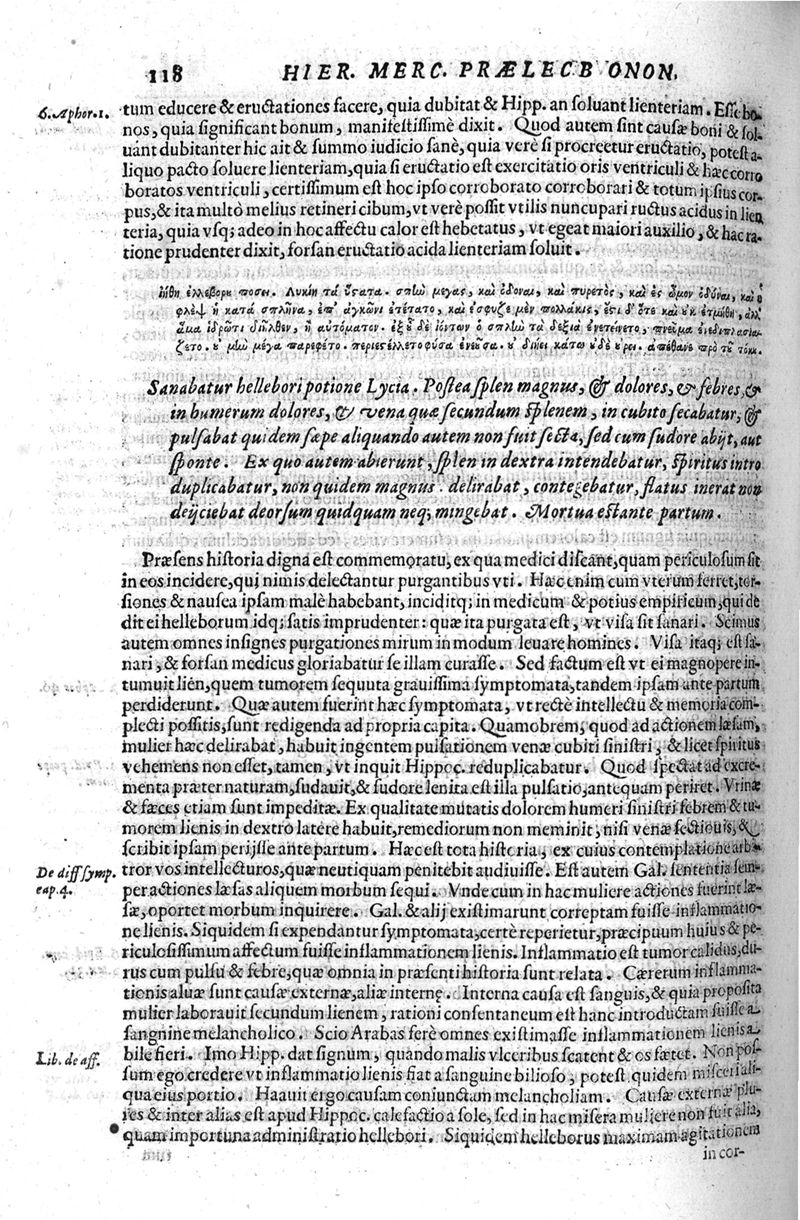 118 HIER. MERC. PRÆLECB ONON.
6. Aphor. 1.
tum educere & eructationes facere, quia dubitat & Hipp. an soluant lienteriam. Esse bo-
nos, quia significant bonum, manifestissimè dixit. Quod autem sint causæ boni & sol-
uant dubitanter hic ait & summo iudicio sanè, quia verè si procreetur eructatio, potest a-
liquo pacto soluere lienteriam, quia si eructatio est exercitatio oris ventriculi & hæc corro
boratos ventriculi, certissimum est hoc ipso corroborato corroborari & totum ipsius cor-
pus, & ita multò melius retineri cibum, vt verè possit vtilis nuncupari ructus acidus in lien
teria, quia vsq; adeo in hoc affectu calor est hebetatus, vt egeat maiori auxilio, & hac ra-
tione prudenter dixit, forsan eructatio acida lienteriam soluit.
ἐλλεβορε ποσει. Λυκίη τὰ ὕςατα. σπλὼ μεγας, καὶ ὀδοναι, καὶ πυρετὸς, καὶ ἐς ὦμον ὀδύναι, καὶ
φλὲψ ἡ κατὰ σπλῆνα, ἐπ' ἀγκῶνι ἐτέτατο, καὶ ἐσφυζε μὲν πολλακις,
ἅμα ἱδρῶτι διῆλθεν, ἢ αὐτόματον. ἐξ ὗ δὲ ἰόντων ὁ σπλὼ τὰ δεξιὰ ἐνετείνετο, πνεῦμα
ζετο. μέγα παρεφέτο. περιεςέλλετο φύσα ἐνεῦσα. κάτω ἀπέθανε πρὸ τῦ τόκυ.
Sanabatur hellebori potione Lycia. Postea splen magnus, & dolores, & febres, &
in humerum dolores, & vena quæ secundum splenem, in cubito secabatur, &
pulsabat quidem sæpe aliquando autem non fuit secta, sed cum sudore abijt, aut
sponte. Ex quo autem abierunt, splen in dextra intendebatur, spiritus intro
duplicabatur, non quidem magnus. delirabat, contegebatur, flatus inerat non
deijciebat deorsum quidquam neq; mingebat. Mortua est ante partum.
Præsens historia digna est commemoratu, ex qua medici discant, quam periculosum sit
in eos incidere, qui nimis delectantur purgantibus vti. Hæc enim cum vterum ferret, tor-
siones & nausea ipsam malè habebant, inciditq; in medicum & potius empiricum, qui de
dit ei helleborum idq; satis imprudenter: quæ ita purgata est, vt visa sit sanari. Scimus
autem omnes insignes purgationes mirum in modum leuare homines. Visa itaq; est sa-
nari, & forsan medicus gloriabatur se illam curasse. Sed factum est vt ei magnopere in-
tumuit lien, quem tumorem sequuta grauissima symptomata, tandem ipsam ante partum
perdiderunt. Quæ autem fuerint hæc symptomata, vt rectè intellectu & memoria com-
plecti possitis, sunt redigenda ad propria capita. Quamobrem, quod ad actionem læsam,
mulier hæc delirabat, habuit ingentem pulsationem venæ cubiti sinistri, & licet spiritus
vehemens non esset, tamen, vt inquit Hippoc. reduplicabatur. Quod spectat ad excre-
menta præter naturam, sudauit, & sudore lenita est illa pulsatio, antequam periret. Vrinæ
& fæces etiam sunt impeditæ. Ex qualitate mutatis dolorem humeri sinistri febrem & tu-
morem lienis in dextro latere habuit, remediorum non meminit, nisi venæ sectionis, &
scribit ipsam perijsse ante partum. Hæc est tota historia, ex cuius contemplatione arbi-
De diff symp. cap. 4.
tror vos intellecturos, quæ neutiquam penitebit audiuisse. Est autem Gal. sententia sem-
per actiones læsas aliquem morbum sequi. Vnde cum in hac muliere actiones fuerint læ-
sæ, oportet morbum inquirere. Gal. & alij existimarunt correptam fuisse inflammatio-
ne lienis. Siquidem si expendantur symptomata, certè reperietur, præcipuum huius & pe-
riculosissimum affectum fuisse inflammationem lienis. Inflammatio est tumor calidus, du-
rus cum pulsu & febre, quæ omnia in præsenti historia sunt relata. Cærerum inflamma-
tionis aluæ sunt causæ externæ, aliæ internę. Interna causa est sanguis, & quia proposita
mulier laborauit secundum lienem, rationi consentaneum est hanc introductam fuisse a
sangnine melancholico. Scio Arabas ferè omnes existimasse inflammationem lienis a
Lib. de aff.
bile fieri. Imo Hipp. dat signum, quando malis vlceribus scatent & os fætet. Non pos-
sum ego credere vt inflammatio lienis fiat a sanguine bilioso, potest quidem misceri ali-
qua eius portio. Haauit ergo causam coniunctam melancholiam. Causæ externæ plu-
res & inter alias est apud Hippoc. calefactio a sole, sed in hac misera muliere non fuit alia,
quam importuna administratio hellebori. Siquidem helleborus maximam agitationem
in cor-